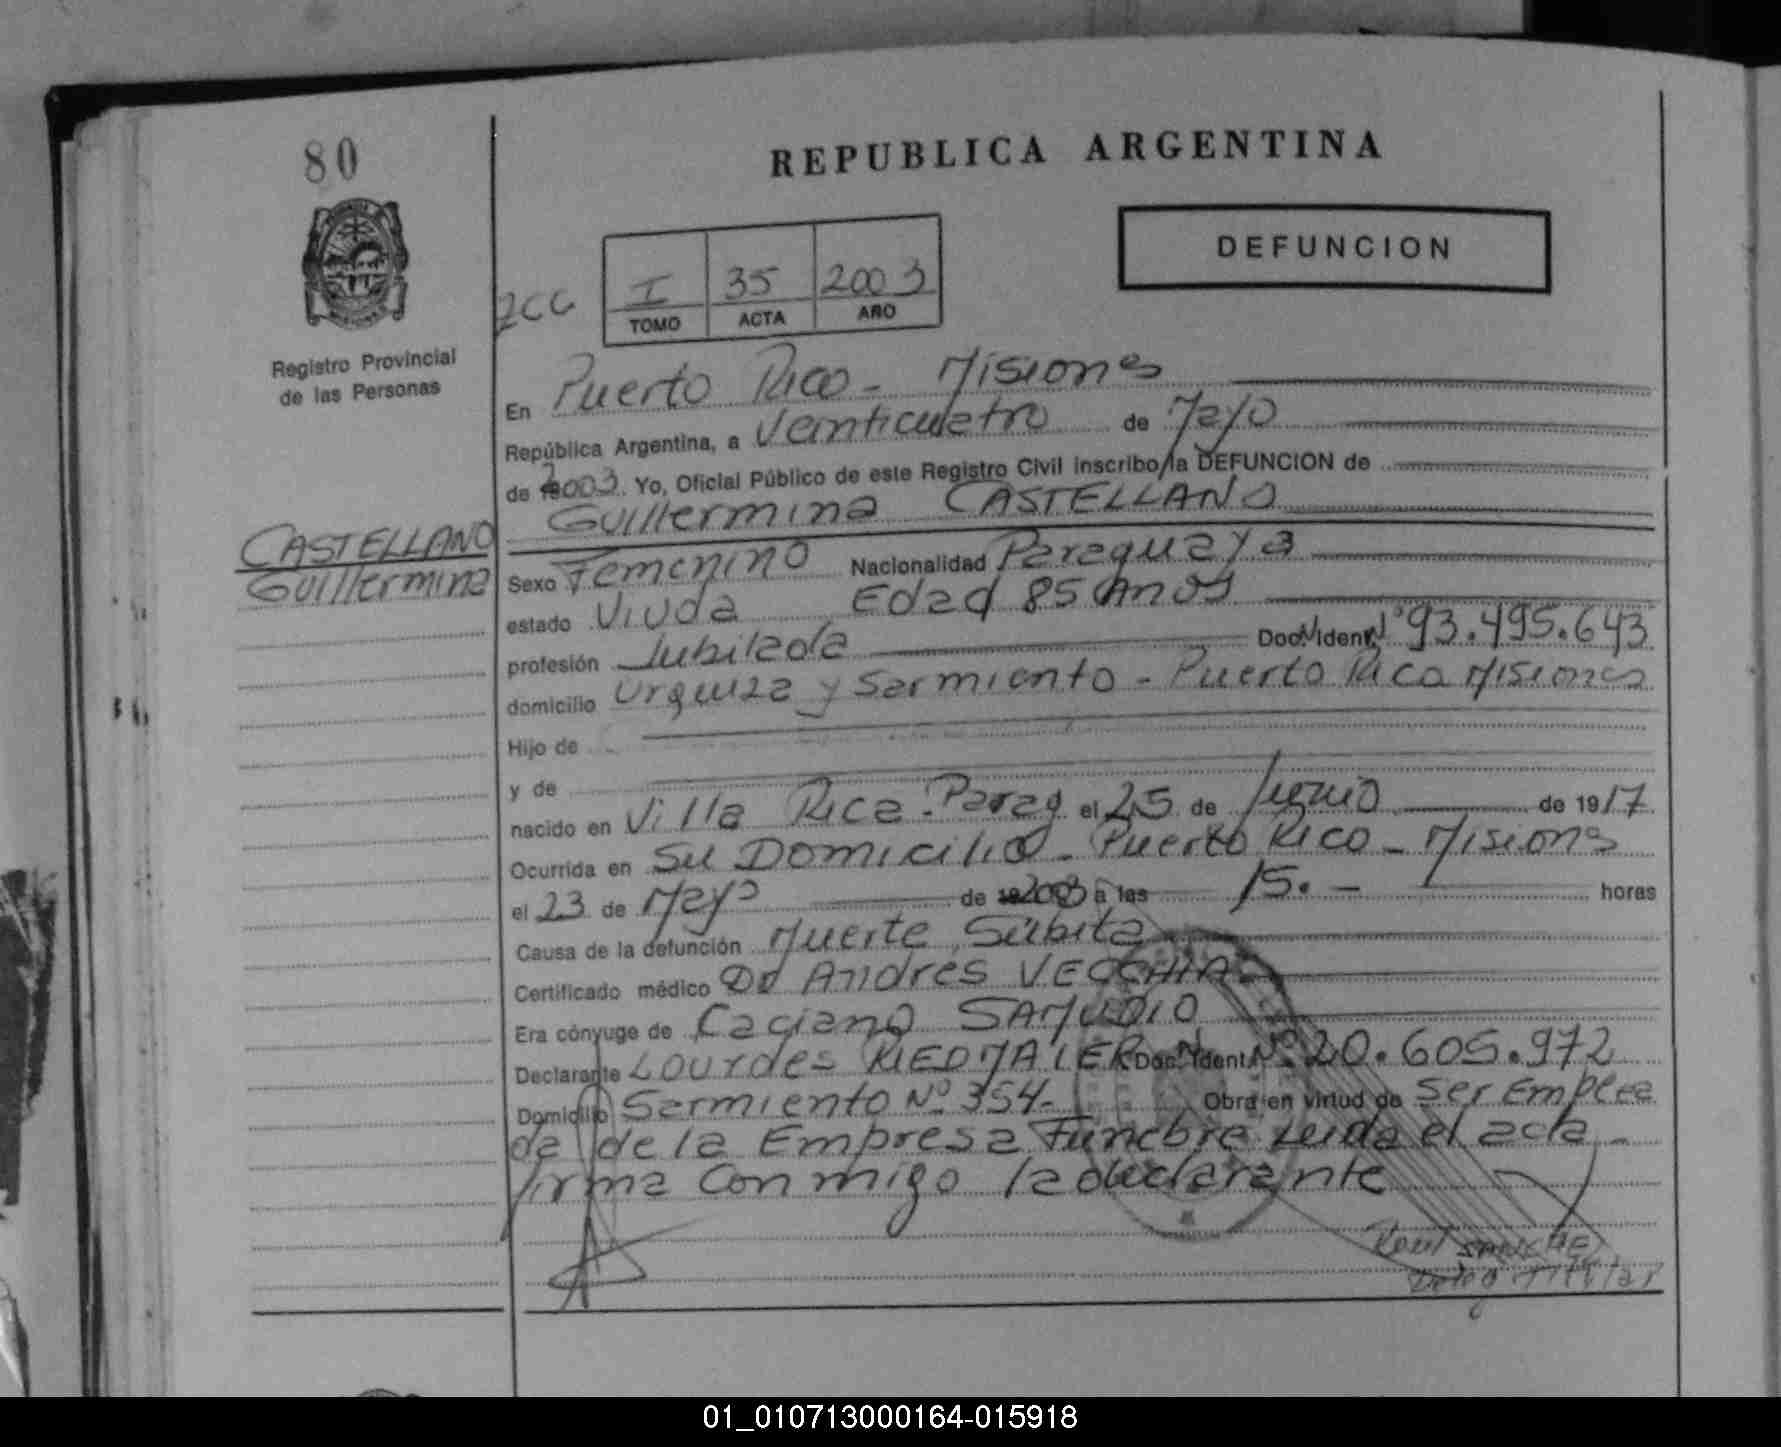 80
REPUBLICA ARGENTINA
DEFUNCION
I 35 2003
TOMO ACTA AÑO
Registro Provincial
de las Personas
En Puerto Rico - Misiones
República Argentina, a Veinticuatro de Mayo
de 2003. Yo, Oficial Público de este Registro Civil inscribo la DEFUNCION de
Guillermina CASTELLANO
CASTELLANO
Guillermina
Sexo Femenino Nacionalidad Paraguaya
estado Viuda Edad 85 Anos
profesión Jubilada Doc. Ident. Nº 93.495.643
domicilio Urquiza y Sarmiento - Puerto Rico Misiones
Hijo de
y de
nacido en Villa Rica. Parag el 25 de Junio de 1917
Ocurrida en Su Domicilio - Puerto Rico - Misions
el 23 de Mayo de 2003 a las 15. - horas
Causa de la defunción Muerte Súbita
Certificado médico Dr Andres VECCHIA
Era cónyuge de SAMUDIO
Declarante Lourdes RIEDMAIER Doc. Ident. Nº 20.605.972
Domicilio Sarmiento Nº 354- Obra en virtud de Ser Emplea
da de la Empresa Funebre Leida el acta -
firma Conmigo la declarante
Raul SANCHE
Deleg Titular
01_010713000164-015918